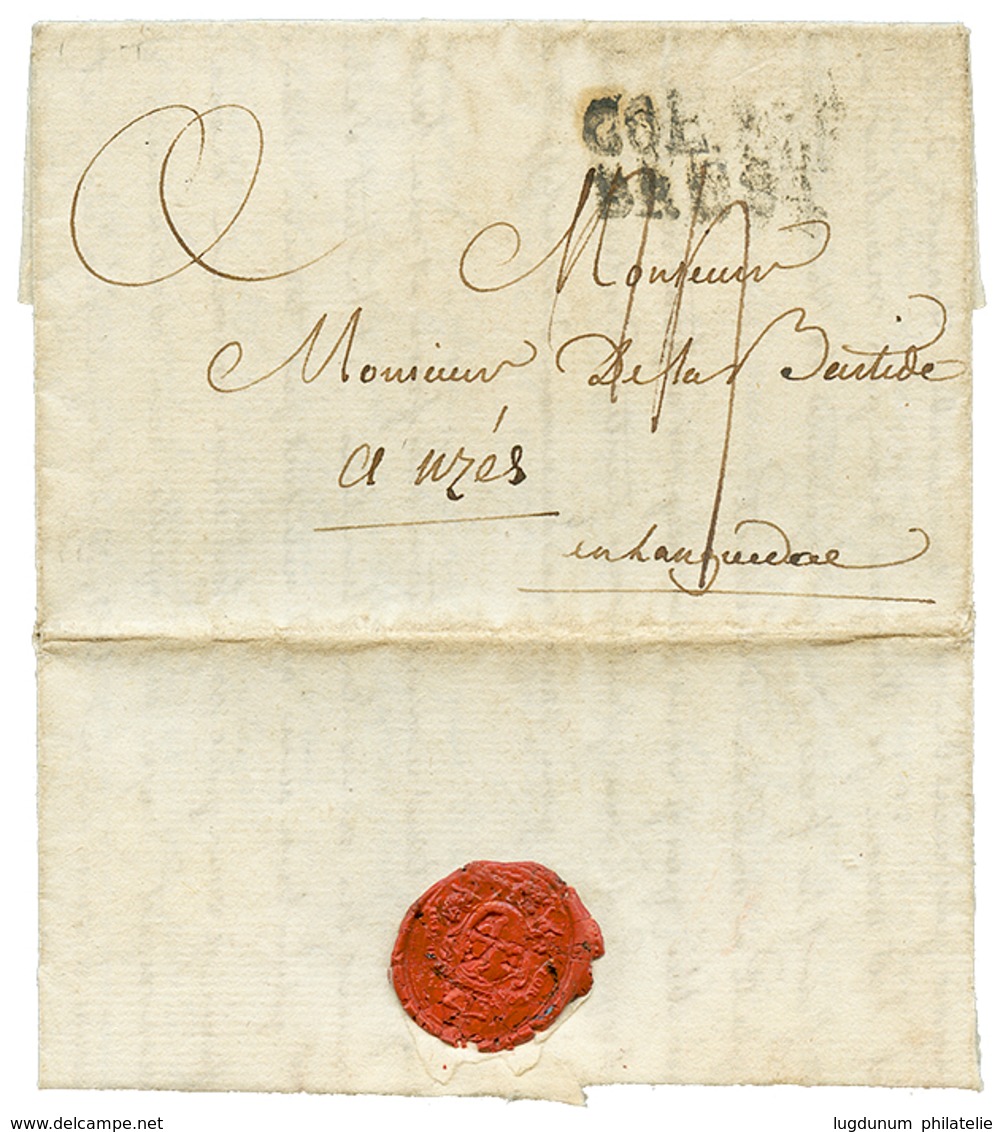 COL. PAR
BREST
Monsieur
Monsieur De la Bastide
a uzés
en Languedoc
delcampe.net
lugdunum philatelie